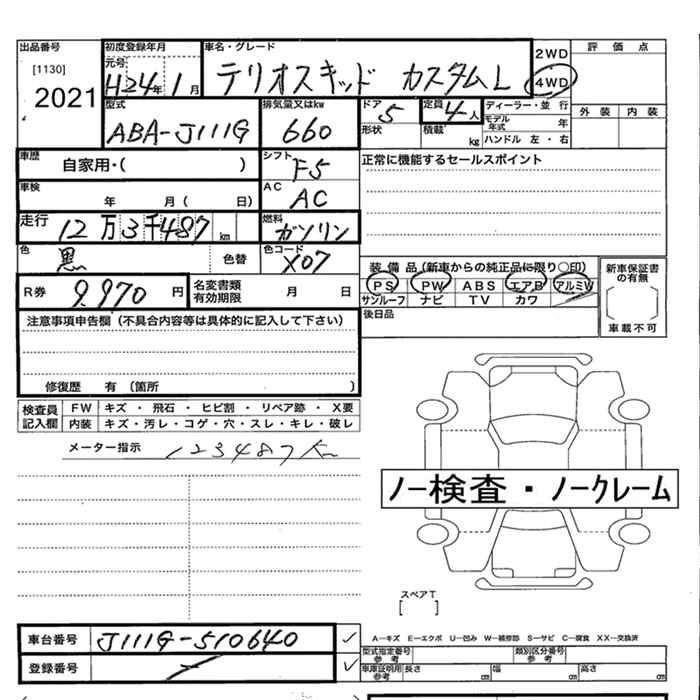 出品番号 初度登録年月 車名・グレード 2WD 評価点
[1130] 元号 H24年 1月 テリオスキッド カスタムL 4WD
2021 型式 排気量又はkw ドア 定員 ディーラー・並行 外装 内装
ABA-J111G 660 5 4人 モデル年式 年
形状 積載 kg ハンドル 左・右
車歴 自家用・( ) シフト F5 正常に機能するセールスポイント
車検 年 月( 日) AC AC
走行 12万3千487km 燃料 ガソリン
色 黒 色替 色コード X07 装備品(新車からの純正品に限り○印) 新車保証書の有無
R券 9,970円 名変書類有効期限 月 日 PS PW ABS エアB アルミW
サンルーフ ナビ TV カワ
車載不可
注意事項申告欄(不具合内容等は具体的に記入して下さい) 後日品
修復歴 有(箇所 )
検査員記入欄 FW キズ・飛石・ヒビ割・リペア跡・X要
内装 キズ・汚レ・コゲ・穴・スレ・キレ・破レ
メーター指示 123487km
ノー検査・ノークレーム
スペアT
[ ]
車台番号 J111G-510640 ✓ A–キズ E–エクボ U–凹み W–補修跡 S–サビ C–腐食 XX–交換済
登録番号 ✓ 型式指定番号 参考 類別区分番号 参考
車庫証明用 参考 長さ cm 幅 cm 高さ cm